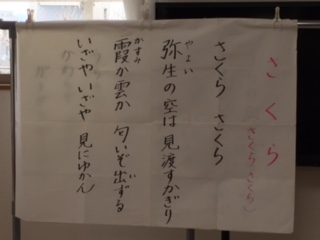 さくら
(さくらさくら)
さくら さくら
弥生の空は 見渡すかぎり
やよい
霞か雲か 匂いぞ出ずる
かすみ
いざや いざや 見にゆかん